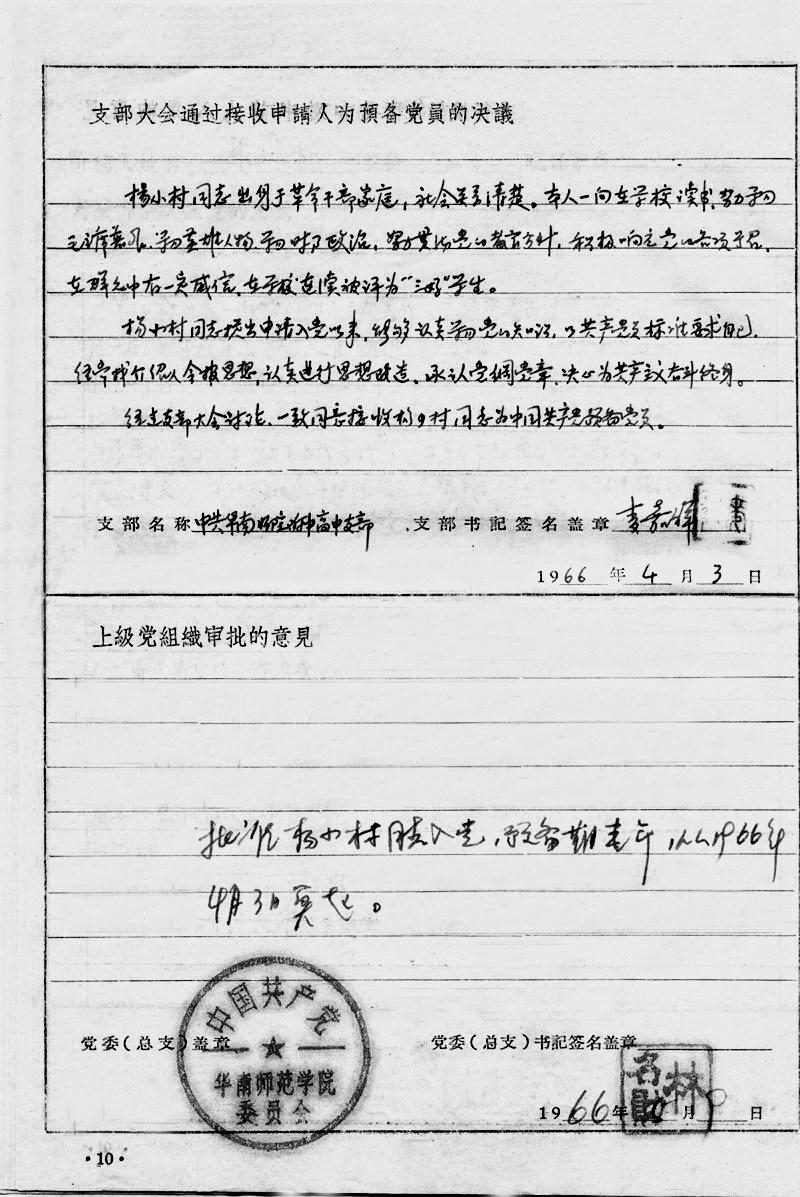 支部大会通过接收申請人为預备党員的决議
杨小村同志出身于革命干部家庭，社会关系清楚。本人一向在学校读书，努力学习
毛主席著作、学习英雄人物、学习时事政治，贯彻党的教育方针，积极响应党的各项号召，
在群众中有一定威信，在学校连续被评为“三好”学生。
杨小村同志提出申请入党以来，能够认真学习党的知识，以共产党员标准要求自己，
经常找介绍人汇报思想，认真进行思想改造。承认党纲党章，决心为共产主义奋斗终身。
经过支部大会讨论，一致同意接收杨小村同志为中国共产党预备党员。
支部名称 中共华南师院附中高中支部 支部书記签名盖章
1966年4月3日
上級党組織审批的意見
批准杨小村同志入党，预备期壹年，从1966年
4月3日算起。
中国共产党
华南师范学院
委员会
党委（总支）盖章 党委（总支）书記签名盖章
林
名
1966年 月 日
·10·